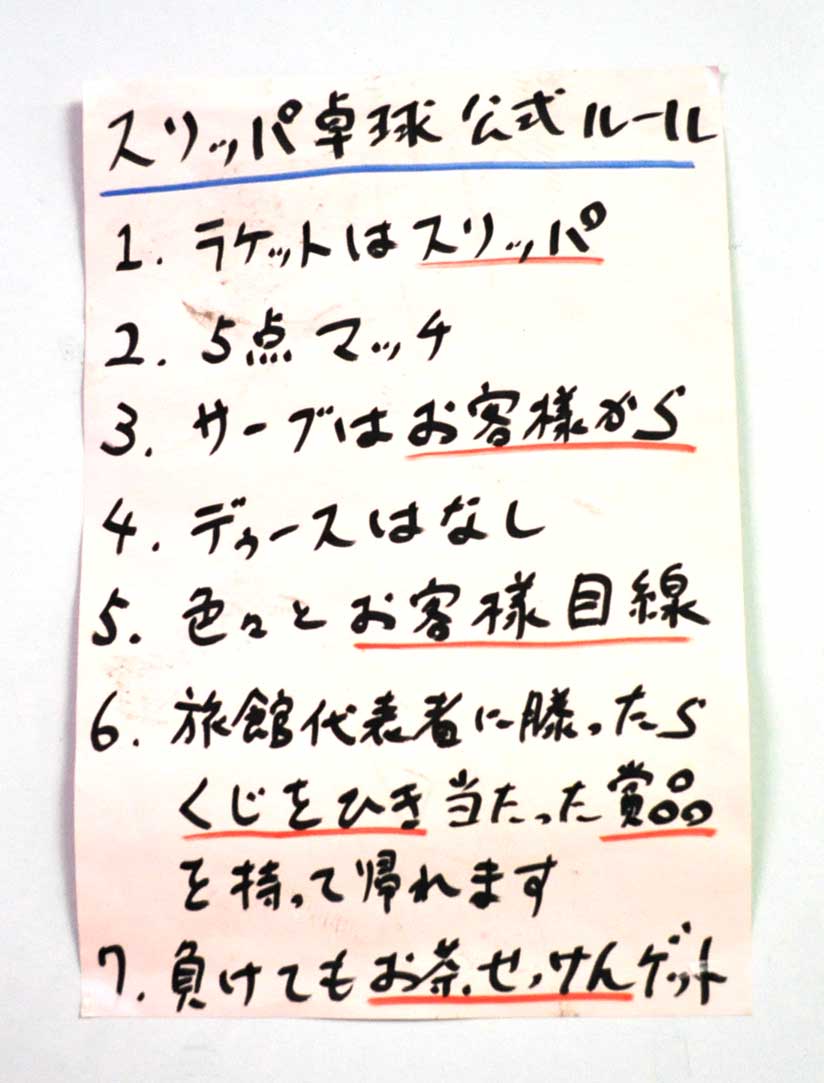 スリッパ卓球公式ルール
1. ラケットはスリッパ
2. 5点マッチ
3. サーブはお客様から
4. デゥースはなし
5. 色々とお客様目線
6. 旅館代表者に勝ったら
くじをひき当たった賞品
を持って帰れます
7. 負けてもお茶、せっけんゲット